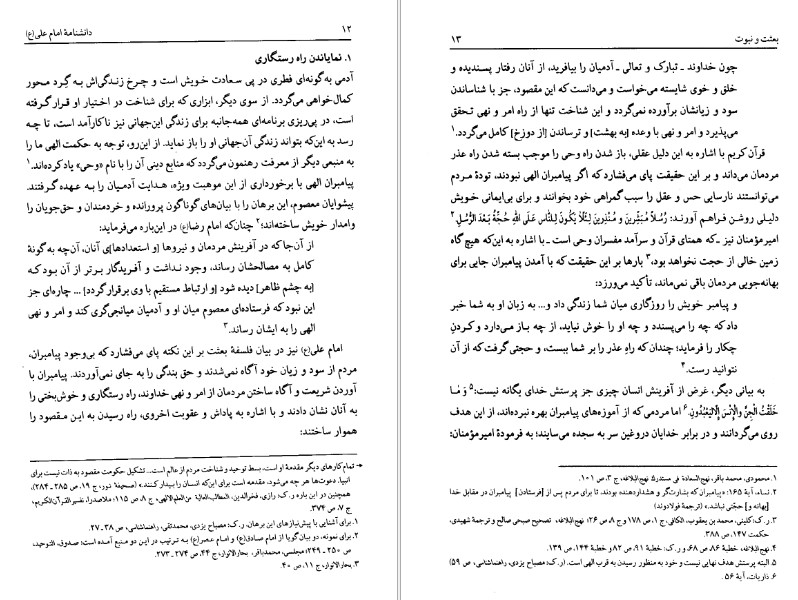 دانشنامهٔ امام علی(ع)
۱۲
۱. نمایاندن راه رستگاری
آدمی به‌گونه‌ای فطری در پی سعادت خویش است و چرخ زندگی‌اش به گِرد محور
کمال‌خواهی می‌گردد. از سوی دیگر، ابزاری که برای شناخت در اختیار او قرار گرفته
است، در پی‌ریزی برنامه‌ای همه‌جانبه برای زندگی این‌جهانی نیز ناکارآمد است، تا چه
رسد به این‌که بتواند زندگی آن‌جهانی او را باز نماید. از این‌رو، توجه به حکمت الهی ما را
به منبعی دیگر از معرفت رهنمون می‌گردد که منابع دینی آن را با نام «وحی» یاد کرده‌اند.۱
پیامبران الهی با برخورداری از این موهبت ویژه، هدایت آدمیان را به عهده گرفتند.
پیشوایان معصوم، این برهان را با بیان‌های گوناگون پرورانده و خردمندان و حق‌جویان را
وامدار خویش ساخته‌اند؛۲ چنان‌که امام رضا(ع) در این‌باره می‌فرماید:
از آن‌جا که در آفرینش مردمان و نیروها [و استعدادها]ی آنان، آن‌چه به گونهٔ
کامل به مصالحشان رساند، وجود نداشت و آفریدگار برتر از آن بود که
[به چشم ظاهر] دیده شود [و ارتباط مستقیم با وی برقرار گردد] ... چاره‌ای جز
این نبود که فرستاده‌ای معصوم میان او و آدمیان میانجی‌گری کند و امر و نهی
الهی را به ایشان رساند.۳
امام علی(ع) نیز در بیان فلسفهٔ بعثت بر این نکته پای می‌فشارد که بی‌وجود پیامبران،
مردم از سود و زیان خود آگاه نمی‌شدند و حق بندگی را به جای نمی‌آوردند. پیامبران با
آوردن شریعت و آگاه ساختن مردمان از امر و نهی خداوند، راه رستگاری و خوش‌بختی را
به آنان نشان دادند و با اشاره به پاداش و عقوبت اخروی، راه رسیدن به این مقصود را
هموار ساختند:
→ تمام کارهای دیگر مقدمهٔ او است، بسط توحید و شناخت مردم از عالم است... تشکیل حکومت مقصود به ذات نیست برای
انبیا. دعوت‌ها هر چه می‌شود، مقدمه است برای این‌که انسان را بیدار کنند.» (صحیفهٔ نور، ج ۱۹، ص ۲۸۵ ـ ۲۸۴).
همچنین در این باره ر.ک: رازی، فخرالدین، المطالب العالیة من العلم الالهی، ج ۸، ص ۱۱۵؛ ملاصدرا، تفسیر القرآن الکریم،
ج ۷، ص ۳۷۴.
۱. برای آشنایی با پیش‌نیازهای این برهان ر.ک: مصباح یزدی، محمدتقی، راهنماشناسی، ص ۳۸ ـ ۲۷.
۲. برای نمونه، دو بیان‌گویا از امام صادق(ع) و امام عصر(ع) به ترتیب در این دو منبع آمده است: صدوق، التوحید،
ص ۲۵۰ ـ ۲۴۹؛ مجلسی، محمدباقر، بحار الانوار، ج ۴۴، ص ۲۷۴ ـ ۲۷۳.
۳. بحار الانوار، ج ۱۱، ص ۴۰.
بعثت و نبوت
۱۳
چون خداوند ـ تبارک و تعالی ـ آدمیان را بیافرید، از آنان رفتار پسندیده و
خلق و خوی شایسته می‌خواست و می‌دانست که این مقصود، جز با شناساندن
سود و زیانشان برآورده نمی‌گردد و این شناخت تنها از راه امر و نهی تحقق
می‌پذیرد و امر و نهی با وعده [به بهشت] و ترساندن [از دوزخ] کامل می‌گردد.۱
قرآن کریم با اشاره به این دلیل عقلی، باز شدن راه وحی را موجب بسته شدن راه عذر
مردم می‌داند و بر این حقیقت پای می‌فشارد که اگر پیامبران الهی نبودند، تودهٔ مردم
می‌توانستند نارسایی حس و عقل را سبب گمراهی خود بخوانند و برای بی‌ایمانی خویش
دلیلی روشن فراهم آورند: رُسُلاً مُبَشِّرینَ وَ مُنْذِرینَ لِئَلاّ یَکُونَ لِلنّاسِ عَلَی اللهِ حُجَّةٌ بَعْدَ الرُّسُلِ.۲
امیرمؤمنان نیز ـ که همتای قرآن و سرآمد مفسران وحی است ـ با اشاره به این‌که هیچ گاه
زمین خالی از حجت نخواهد بود،۳ بارها بر این حقیقت که با آمدن پیامبران جایی برای
بهانه‌جویی مردمان باقی نمی‌ماند، تأکید می‌ورزد:
و پیامبر خویش را روزگاری میان شما زندگی داد و... به زبان او به شما خبر
داد که چه را می‌پسندد و چه او را خوش نیاید، از چه باز می‌دارد و کردنِ
چکار را فرماید؛ چندان که راه عذر را بر شما ببست، و حجتی گرفت که از آن
نتوانید رست.۴
به بیانی دیگر، غرض از آفرینش انسان چیزی جز پرستش خدای یگانه نیست:۵ وَ مَا
خَلَقْتُ الْجِنَّ وَالْإِنْسَ إِلاّ لِیَعْبُدُونِ.۶ اما مردمی که از آموزه‌های پیامبران بهره نبرده‌اند، از این هدف
روی می‌گردانند و در برابر خدایان دروغین سر به سجده می‌سایند؛ به فرمودهٔ امیرمؤمنان:
۱. محمودی، محمد باقر، نهج السعادة فی مستدرک نهج‌البلاغه، ج ۳، ص ۱۰۱.
۲. نساء، آیهٔ ۱۶۵: «پیامبران که بشارت‌گر و هشداردهنده بودند، تا برای مردم پس از [فرستادن] پیامبران در مقابل خدا
[بهانه و] حجّتی نباشد.» (ترجمهٔ فولادوند)
۳. ر.ک: کلینی، محمد بن یعقوب، الکافی، ج ۱، ص ۱۷۸ و ج ۸، ص ۲۶؛ نهج‌البلاغه، تصحیح صبحی صالح و ترجمهٔ شهیدی،
حکمت ۱۴۷، ص ۳۸۸.
۴. نهج‌البلاغه، خطبهٔ ۸۶، ص ۶۸. و ر.ک: خطبهٔ ۹۱، ص ۸۲ و خطبهٔ ۱۴۴، ص ۱۳۹.
۵. البته پرستش هدف نهایی نیست و خود به منظور رسیدن به قرب الهی است. (ر.ک: مصباح یزدی، راهنماشناسی، ص ۵۹)
۶. ذاریات، آیهٔ ۵۶.